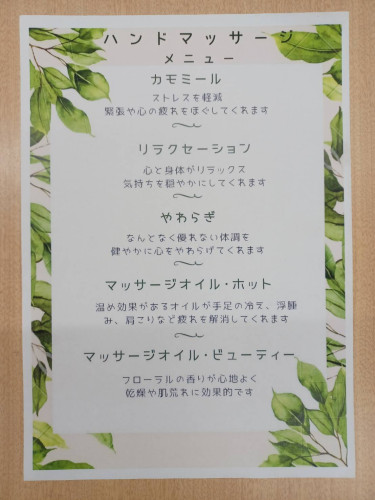 ハンドマッサージ
メニュー
カモミール
ストレスを軽減
緊張や心の疲れをほぐしてくれます
リラクセーション
心と身体がリラックス
気持ちを穏やかにしてくれます
やわらぎ
なんとなく優れない体調を
健やかに心をやわらげてくれます
マッサージオイル・ホット
温め効果があるオイルが手足の冷え、浮腫
み、肩こりなど疲れを解消してくれます
マッサージオイル・ビューティー
フローラルの香りが心地よく
乾燥や肌荒れに効果的です